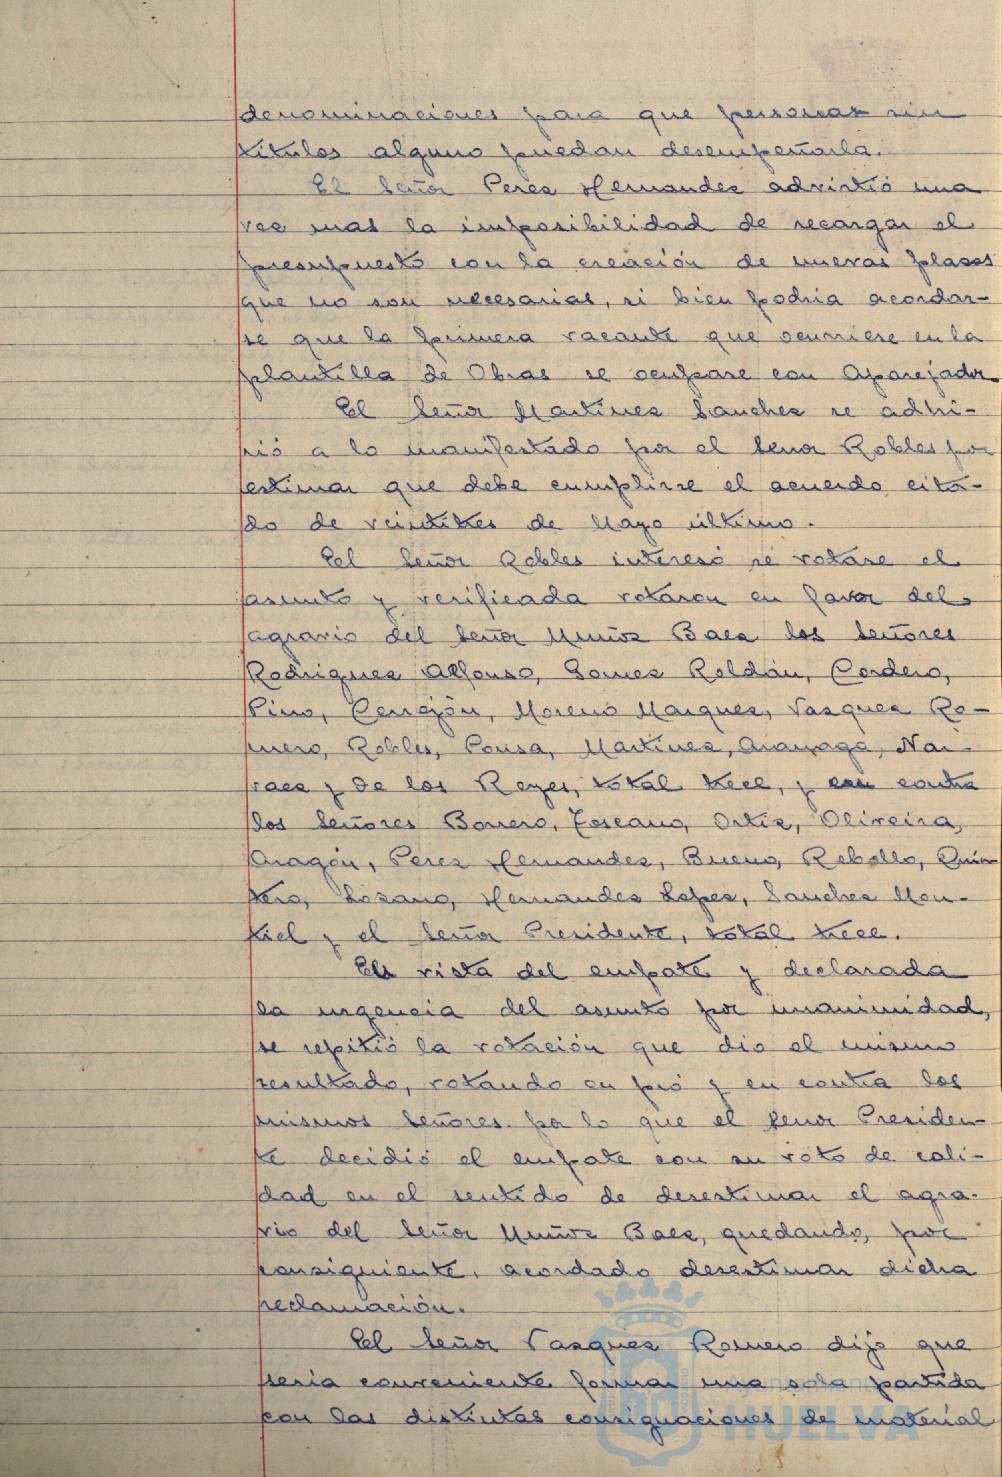 denominaciones para que personas sin
titulos alguno puedan desempeñarla.
El Señor Perez Hernandez advirtió una
vez mas la imposibilidad de recargar el
presupuesto con la creación de nuevas plazas
que no son necesarias, si bien podria acordar-
se que la primera vacante que ocurriese en la
plantilla de Obras se ocupase con Aparejador.
El Señor Martinez Sanchez se adhi-
rió a lo manifestado por el Señor Robles por
estimar que debe cumplirse el acuerdo cita-
do de veintitres de Mayo último.
El Señor Robles interesó se votase el
asunto y verificada votaron en favor del
agravio del Señor Muñoz Baez los Señores
Rodriguez Alfonso, Gomez Roldán, Cordero,
Pino, Cerrejón, Moreno Marquez, Vazquez Ro-
mero, Robles, Ponsa, Martinez, Aramaga, Nar-
vaez y de los Reyes, total trece, y en contra
los Señores Borrero, Toscano, Ortiz, Oliveira,
Aragón, Perez Hernandez, Bueno, Rebollo, Quin-
tero, Lozano, Hernandez Lopez, Sanchez Mon-
tiel y el Señor Presidente, total trece.
En vista del empate y declarada
la urgencia del asunto por unanimidad,
se repitió la votación que dio el mismo
resultado, votando en pró y en contra los
mismos Señores. por lo que el Señor Presiden-
te decidió el empate con su voto de cali-
dad en el sentido de desestimar el agra-
vio del Señor Muñoz Baez, quedando, por
consiguiente, acordado desestimar dicha
reclamación.
El Señor Vazquez Romero dijo que
seria conveniente formar una sola partida
con las distintas consignaciones de material
HUELVA